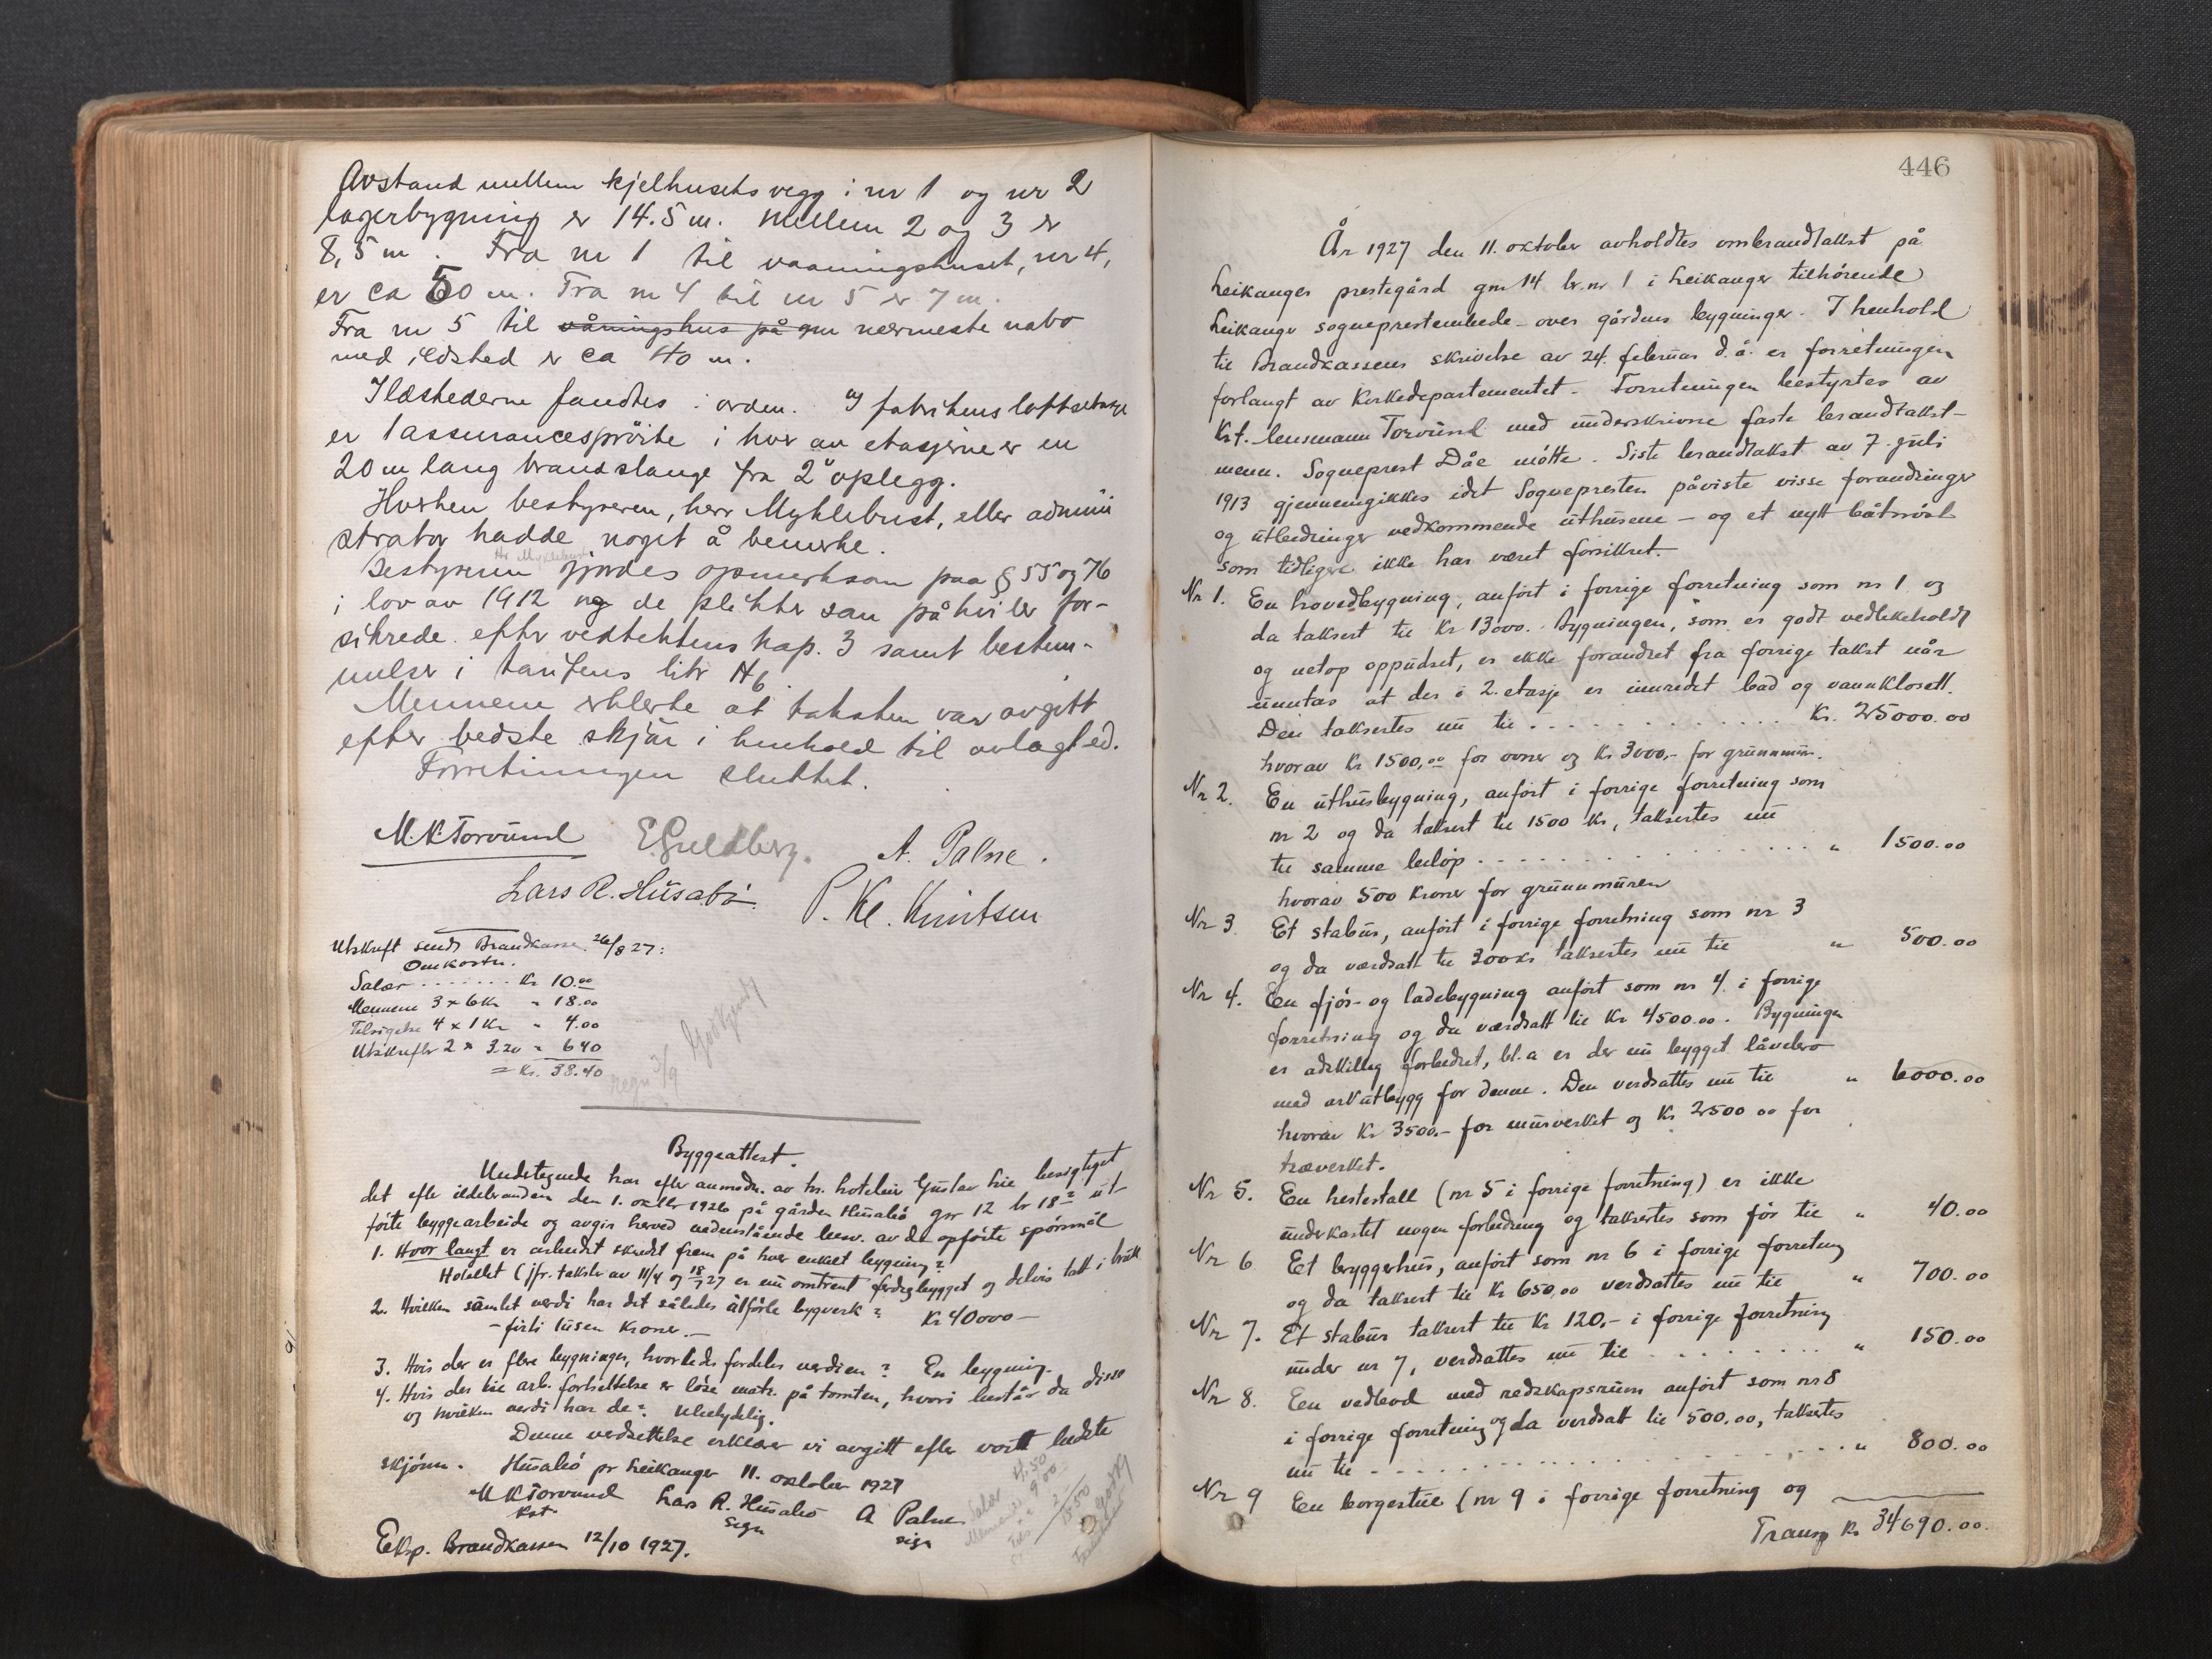 Avstand mellem kjelhusets vegg i nr 1 og nr 2
lagerbygning er 14.5 m. Mellem 2 og 3 er
8,5 m. Fra nr 1 til vaaningshuset, nr 4,
er ca 50 m. Fra nr 4 til nr 5 er 7 m.
Fra nr 5 til våningshus på gnr nærmeste nabo
med ildsted er ca 40 m.
Ildstederne fandtes i orden. I fabrikens loftsetasje
er 1 assurancesprøite i hver av etasjerne er en
20 m lang brandslange fra 2" oplegg.
Hverken bestyreren, herr Myklebust, eller admini
strator hadde noget å bemerke.
Hr. Myklebust
Bestyreren gjordes opmerksom paa § 55 og 76
i lov av 1912 og de plikter som påhviler for-
sikrede efter vedtektens kap. 3 samt bestem-
melser i tarifens litr H6.
Mennene erklerte at taksten var avgitt
efter bedste skjøn i henhold til avlagt ed.
Forretningen sluttet.
M.K. Torvund E. Guldberg. A. Palne.
Lars R. Husabø. P. Kl. Knutsen
Utskrift sendt Brandkassen 26/8 27:
Omkostn.
Salær ....... Kr 10.00
Mennene 3 x 6 kr " 18.00
Tilsigelse 4 x 1 Kr " 4.00
Utskrifter 2 x 3.20 " 6 40
= Kr. 38.40
regn 3/9 Godkjendt
Byggeattest.
Undertegnede har efter anmodn. av hr. hotelier Gustav Lie besigtiget
det efter ildebranden den 1. oktbr 1926 på gården Husabø gnr 12 br 18² ut
førte byggearbeide og avgir herved nedenstående besv. av de opførte spørsmål
1. Hvor langt er arbeidet skredet frem på hver enkelt bygning?
Hotellet (jfr. takster av 11/4 og 18/7 27 er nu omtrent ferdigbygget og delvis tatt i bruk
2. Hvilken samlet verdi har det således utførte bygverk? Kr 40000 —
– firti tusen Kroner. —
3. Hvis der er flere bygninger, hvorledes fordeles verdien? En bygning.
4. Hvis der til arb. fortsettelse er løse matr. på tomten, hvori består da disse
og hvilken verdi har de? Ubetydelig.
Denne verdsettelse erklærer vi avgitt efter vort bedste
skjønn. Husabø pr Leikanger 11. oktober 1927
M K Torvund Lars R. Husabø A Palne
kst. sign sign
Salær 4.50
9.00
2
15.50
Godkj
Eksp. Brandkassen 12/10 1927.
446
År 1927 den 11. oktober avholdtes ombrandtakst på
Leikanger prestegård gnr 14 br.nr 1 i Leikanger tilhørende
Leikanger sogneprestembede over gårdens bygninger. I henhold
til Brandkassens skrivelse av 24. februar d.å. er forretningen
forlangt av Kirkedepartementet. Forretningen bestyrtes av
Kst. lensmann Torvund med underskrivne faste brandtakst-
menn. Sogneprest Dåe møtte. Siste brandtakst av 7. juli
1913 gjennemgikkes idet Sognepresten påviste visse forandringer
og utbedringer vedkommende uthusene — og et nytt båtnøst
som tidligere ikke har været forsikret.
Nr 1. En hovedbygning, anført i forrige forretning som nr 1 og
da taksert til Kr 13000. Bygningen, som er godt vedlikeholdt
og netop oppudset, er ikke forandret fra forrige takst når
unntas at der i 2. etasje er innredet bad og vannklosett.
Den taksertes nu til ............. Kr. 25000.00
hvorav Kr 1500,00 for ovner og Kr 3000,- for grunnmur.
Nr 2. En uthusbygning, anført i forrige forretning som
nr 2 og da taksert til 1500 Kr, taksertes nu
til samme beløp ................ " 1500.00
hvorav 500 Kroner for grunnmuren
Nr 3. Et stabur, anført i forrige forretning som nr 3
og da værdsatt til 300 kr taksertes nu til " 500.00
Nr 4. En fjøs- og ladebygning anført som nr 4 i forrige
forretning og da værdsatt til Kr 4500.00. Bygningen
er adskillig forbedret, bl.a er der nu bygget låvebro
med arkutbygg for denne. Den verdsattes nu til " 6000.00
hvorav Kr 3500.- for murverket og Kr 2500 00 for
træverket.
Nr 5. En hestestall (nr 5 i forrige forretning) er ikke
underkastet nogen forbedring og taksertes som før til " 40.00
Nr 6 Et bryggerhus, anført som nr 6 i forrige forretning
og da taksert til Kr 650,00 verdsattes nu til " 700.00
Nr 7. Et stabur taksert til Kr 120,- i forrige forretning
under nr 7, verdsattes nu til ........ " 150.00
Nr 8. En vedbod med redskapsrum anført som nr 8
i forrige forretning og da verdsatt til 500.00, taksertes
nu til ................. " 800.00
Nr 9 En borgestue (nr 9 i forrige forretning og
Transp Kr 34690.00.